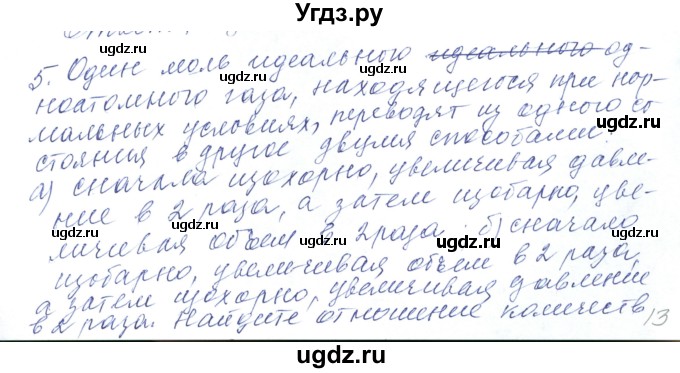 Угдз.ру
5. Один моль идеального идеального од-
ноатомного газа, находящегося при нор-
мальных условиях, переводят из одного со
стояния в другое двумя способами:
а) сначала изохорно, увеличивая давле-
ние в 2 раза, а затем изобарно, уве-
личивая объем в 2 раза. б) сначала
изобарно, увеличивая объем в 2 раза,
а затем изохорно, увеличивая давление
в 2 раза. Найдите отношение количеств 13
uggdz.ru